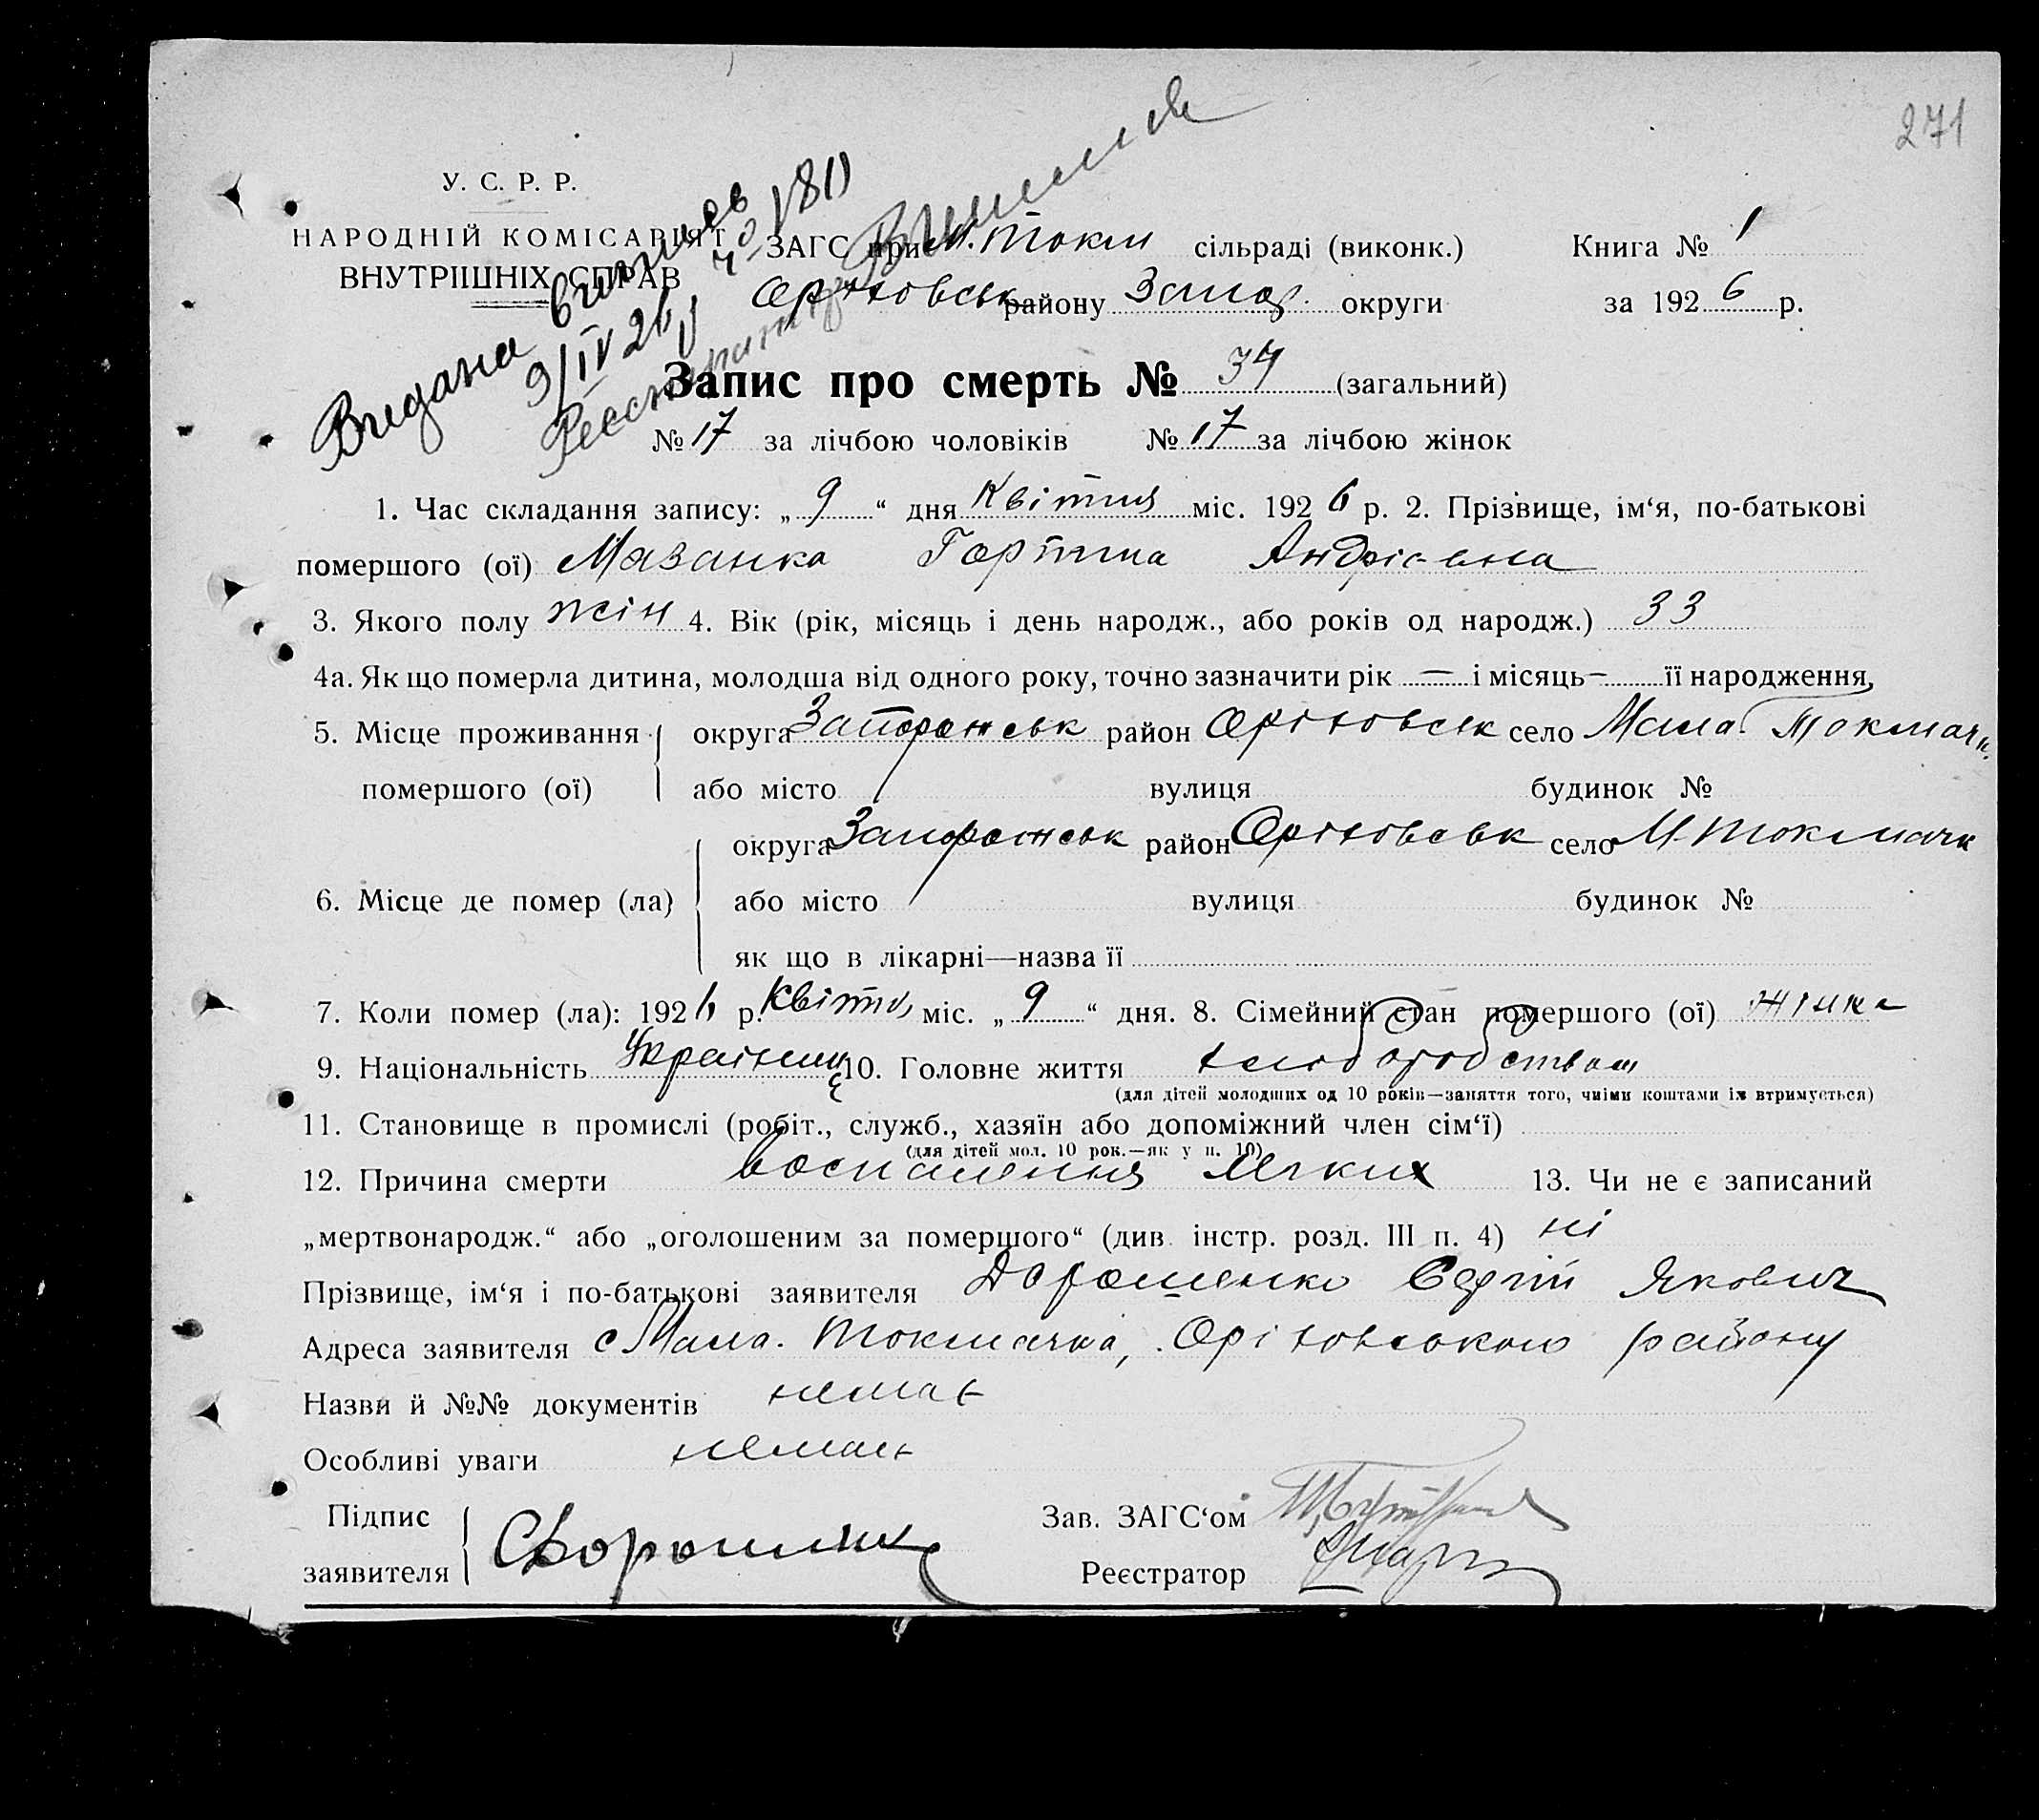 271
У. С. Р. Р.
НАРОДНІЙ КОМІСАРІЯТ
ВНУТРІШНІХ СПРАВ
Видана випись
9/IV 26
ЗАГС при М. Токм сільраді (виконк.) Книга № 1
Оріховськ району Запор. округи за 1926 р.
Запис про смерть № 34 (загальний)
№ 17 за лічбою чоловіків № 17 за лічбою жінок
1. Час складання запису: „ 9 “ дня Квітня міс. 1926 р. 2. Прізвище, ім‘я, по-батькові
помершого (ої) Мазанка Горпина Андріевна
3. Якого полу жін 4. Вік (рік, місяць і день народж., або років од народж.) 33
4а. Як що померла дитина, молодша від одного року, точно зазначити рік — і місяць — її народження,
5. Місце проживання округа Запорожськ район Оріховськ село Мала Токмачк.
помершого (ої) або місто вулиця будинок №
округа Запорожськ район Оріховськ село М. Токмачк
6. Місце де помер (ла) або місто вулиця будинок №
як що в лікарні—назва її
7. Коли помер (ла): 1926 р. Квітня міс. „ 9 “ дня. 8. Сімейний стан помершого (ої) жінка
9. Національність 10. Головне життя хлібодобством
(для дітей молодших од 10 років—заняття того, чиїми коштами їх втримується)
11. Становище в промислі (робіт., служб., хазяїн або допоміжний член сім‘ї)
(для дітей мол. 10 рок.—як у п. 10)
12. Причина смерти воспалення легких 13. Чи не є записаний
„мертвонародж.“ або „оголошеним за помершого“ (див. інстр. розд. III п. 4) ні
Прізвище, ім‘я і по-батькові заявителя Дорошенко Сергій Якович
Адреса заявителя с Мала. Токмачка, Оріховського району
Назви й №№ документів немає
Особливі уваги немає
Підпис Зав. ЗАГС‘ом
заявителя Реєстратор